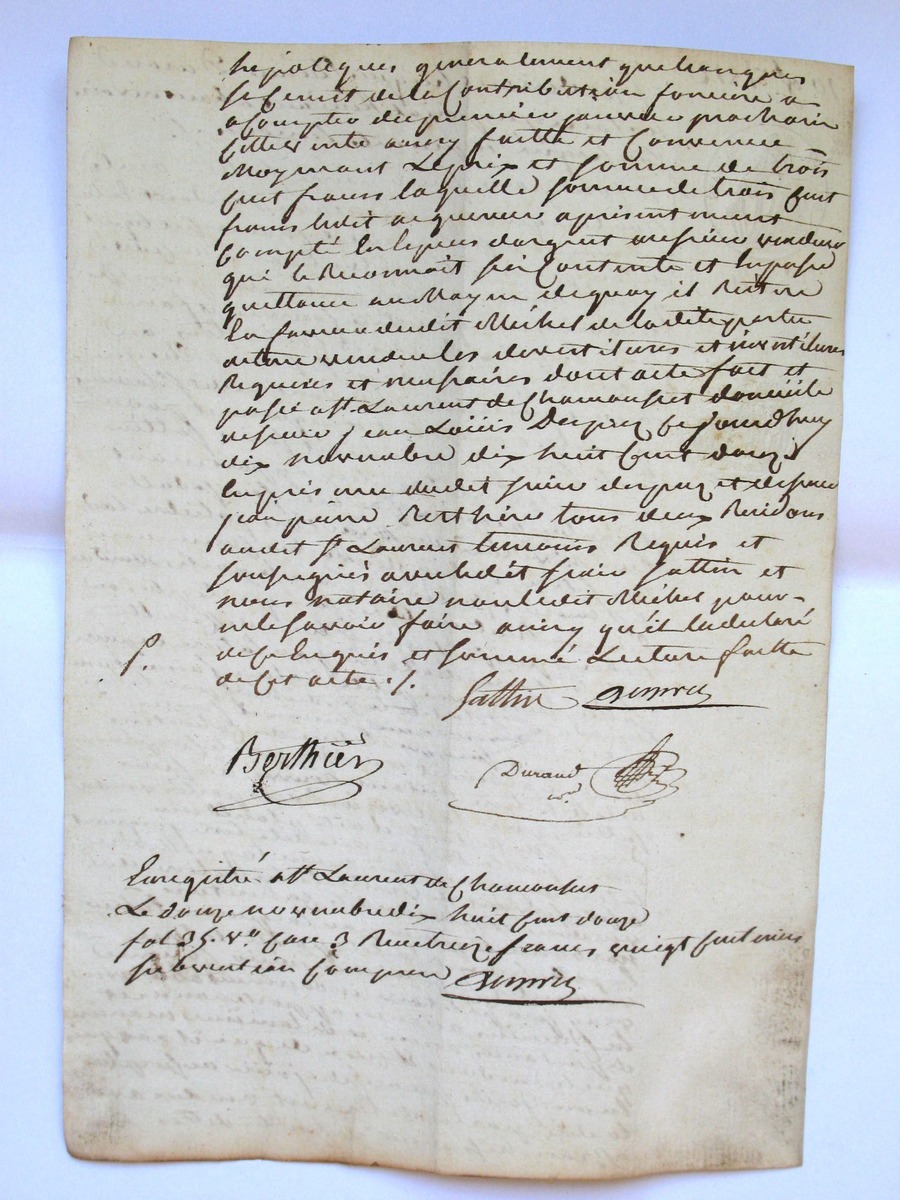 hipoteques generalement quelconques
se Cenit de la Contribution fonciere a
a Compter du premier janvier prochain
Cette vente ainsy faitte et Convenue
Moyenant Le prix et somme de trois
Cent francs laquelle somme de trois Cent
francs ledit acquereur a presentement
Compté En Especes d'argent au sieur vendeur
qui le Reconnait s'en Contente et En passe
quittance au Moyen de quoy il
En faveur dudit Michel de la dite partie
vendue les devestitures et investitures
Requises et necessaires dont acte fait et
passé a St. Laurent de Chamousset domicile
de sieur jean Loüis Desprez Ce jourdhuy
dix novembre dix huit Cent douze
En presence dudit sieur desprez et de sieur
jean pierre Berthier tous deux Residans
audit St Laurent temoins Requis et
soussignés avec ledit sieur Sattin et
nous notaire non ledit Michel pour
ne le savoir faire ainsy qu'il la declaré
de ce Enquis et sommé Lecture faitte
de Cet acte ./.
Sattin
Berthier
Durand
Enregistré a St Laurent de Chamousset
Le douze novembre dix huit Cent douze
fol 35. vo. Case 3 Reçu treize francs vingt Centimes
subvention Comprise